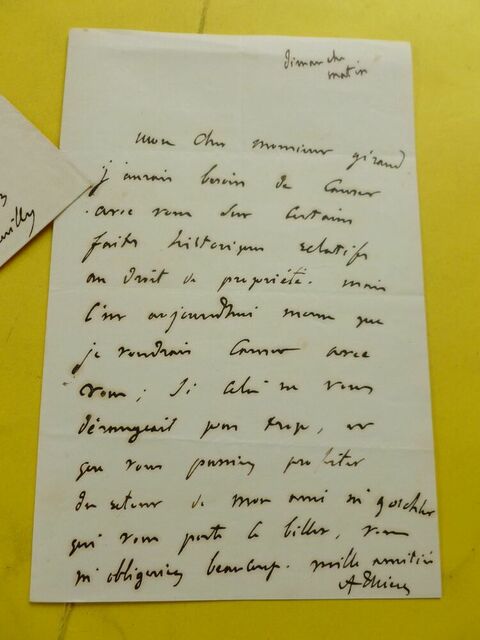 Dimanche
matin
mon cher monsieur giraud
j'aurais besoin de causer
avec vous sur certains
faits historiques relatifs
au droit de propriété. mais
c'est aujourdhui meme que
je voudrais causer avec
vous; si cela ne vous
dérangeait pas trop, et
que vous pussiez profiter
du retour de mon ami m
qui vous porte ce billet, vous
m'obligeriez beaucoup. mille amitiés
A Thiers